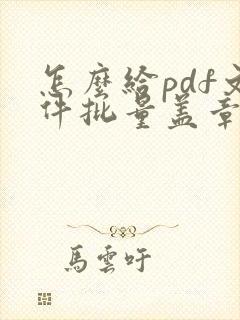 怎麼給pdf文
件批量蓋章
馬雲吁